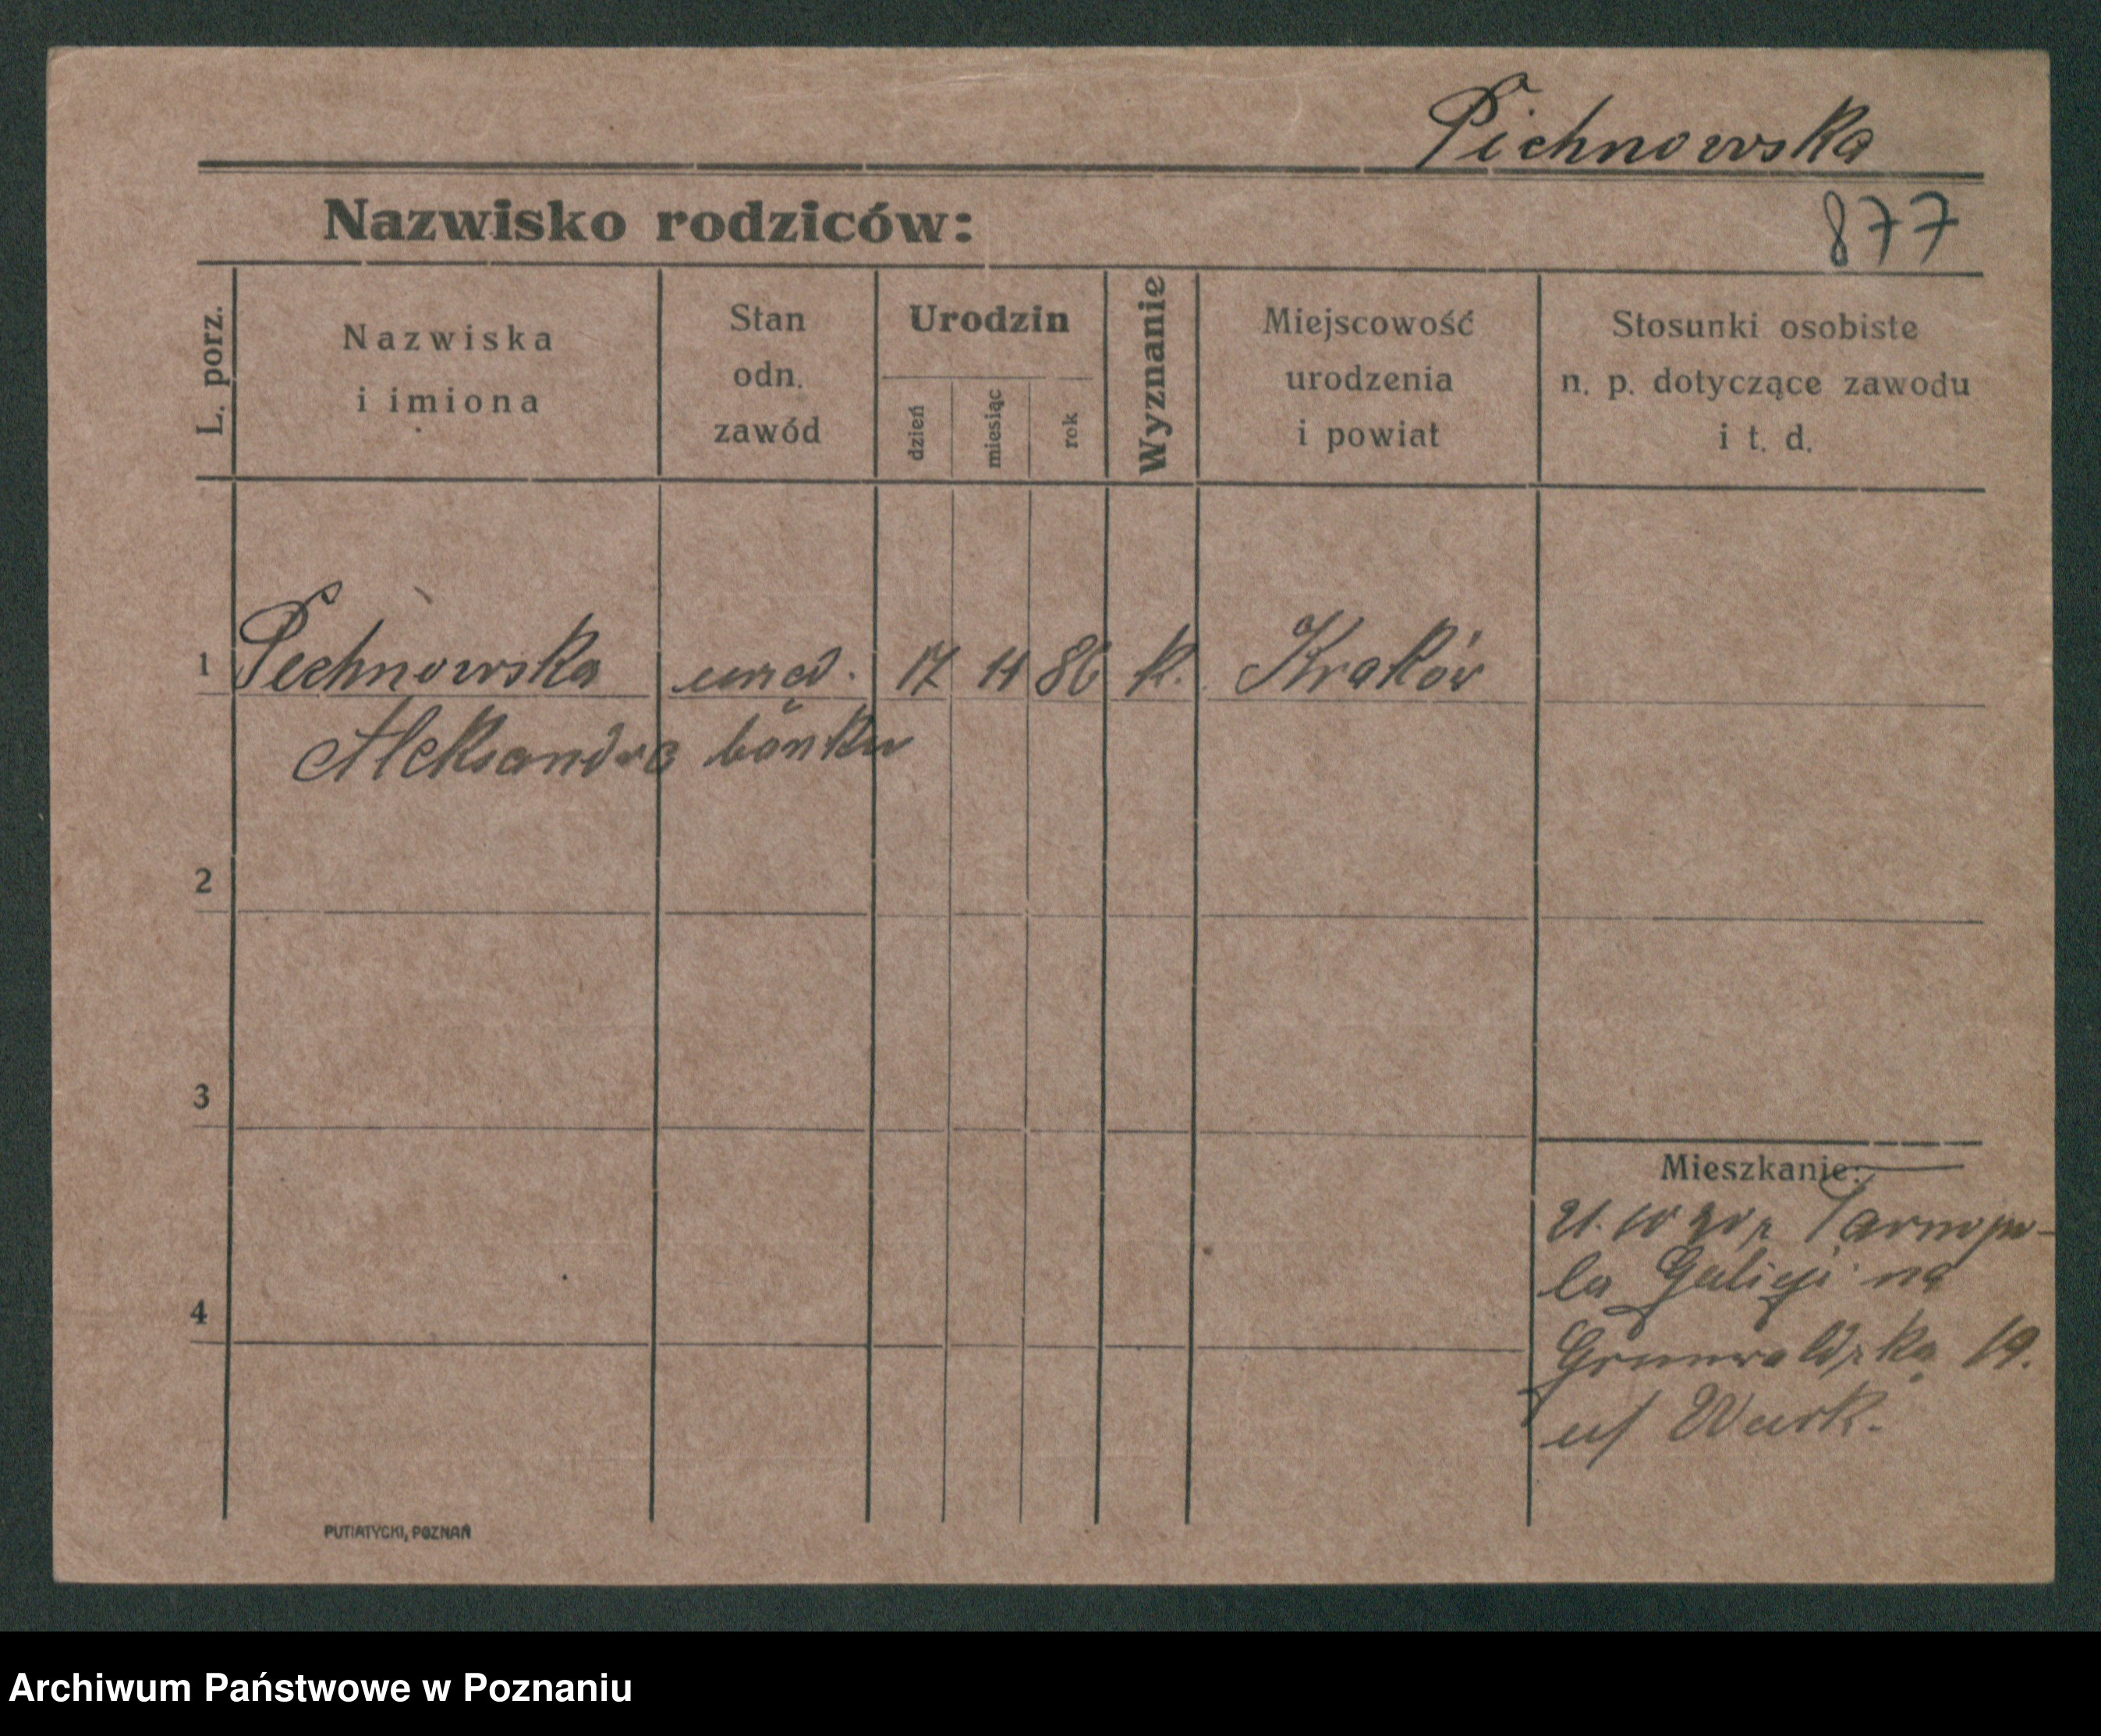 Pichnowska
Nazwisko rodziców:
877
L. porz.
Nazwiska
i imiona
Stan
odn.
zawód
Urodzin
dzień
miesiąc
rok
Wyznanie
Miejscowość
urodzenia
i powiat
Stosunki osobiste
n. p. dotyczące zawodu
i t. d.
1 Pechnowska urzęd. 17 11 86 k. Kraków
Aleksandra banku
2
3
4
Mieszkanie:
21. 10 20 z Tarnopo-
la Galicji na
Grunwaldzką 19.
u/ Wark.
PUTIATYCKI, POZNAŃ
Archiwum Państwowe w Poznaniu